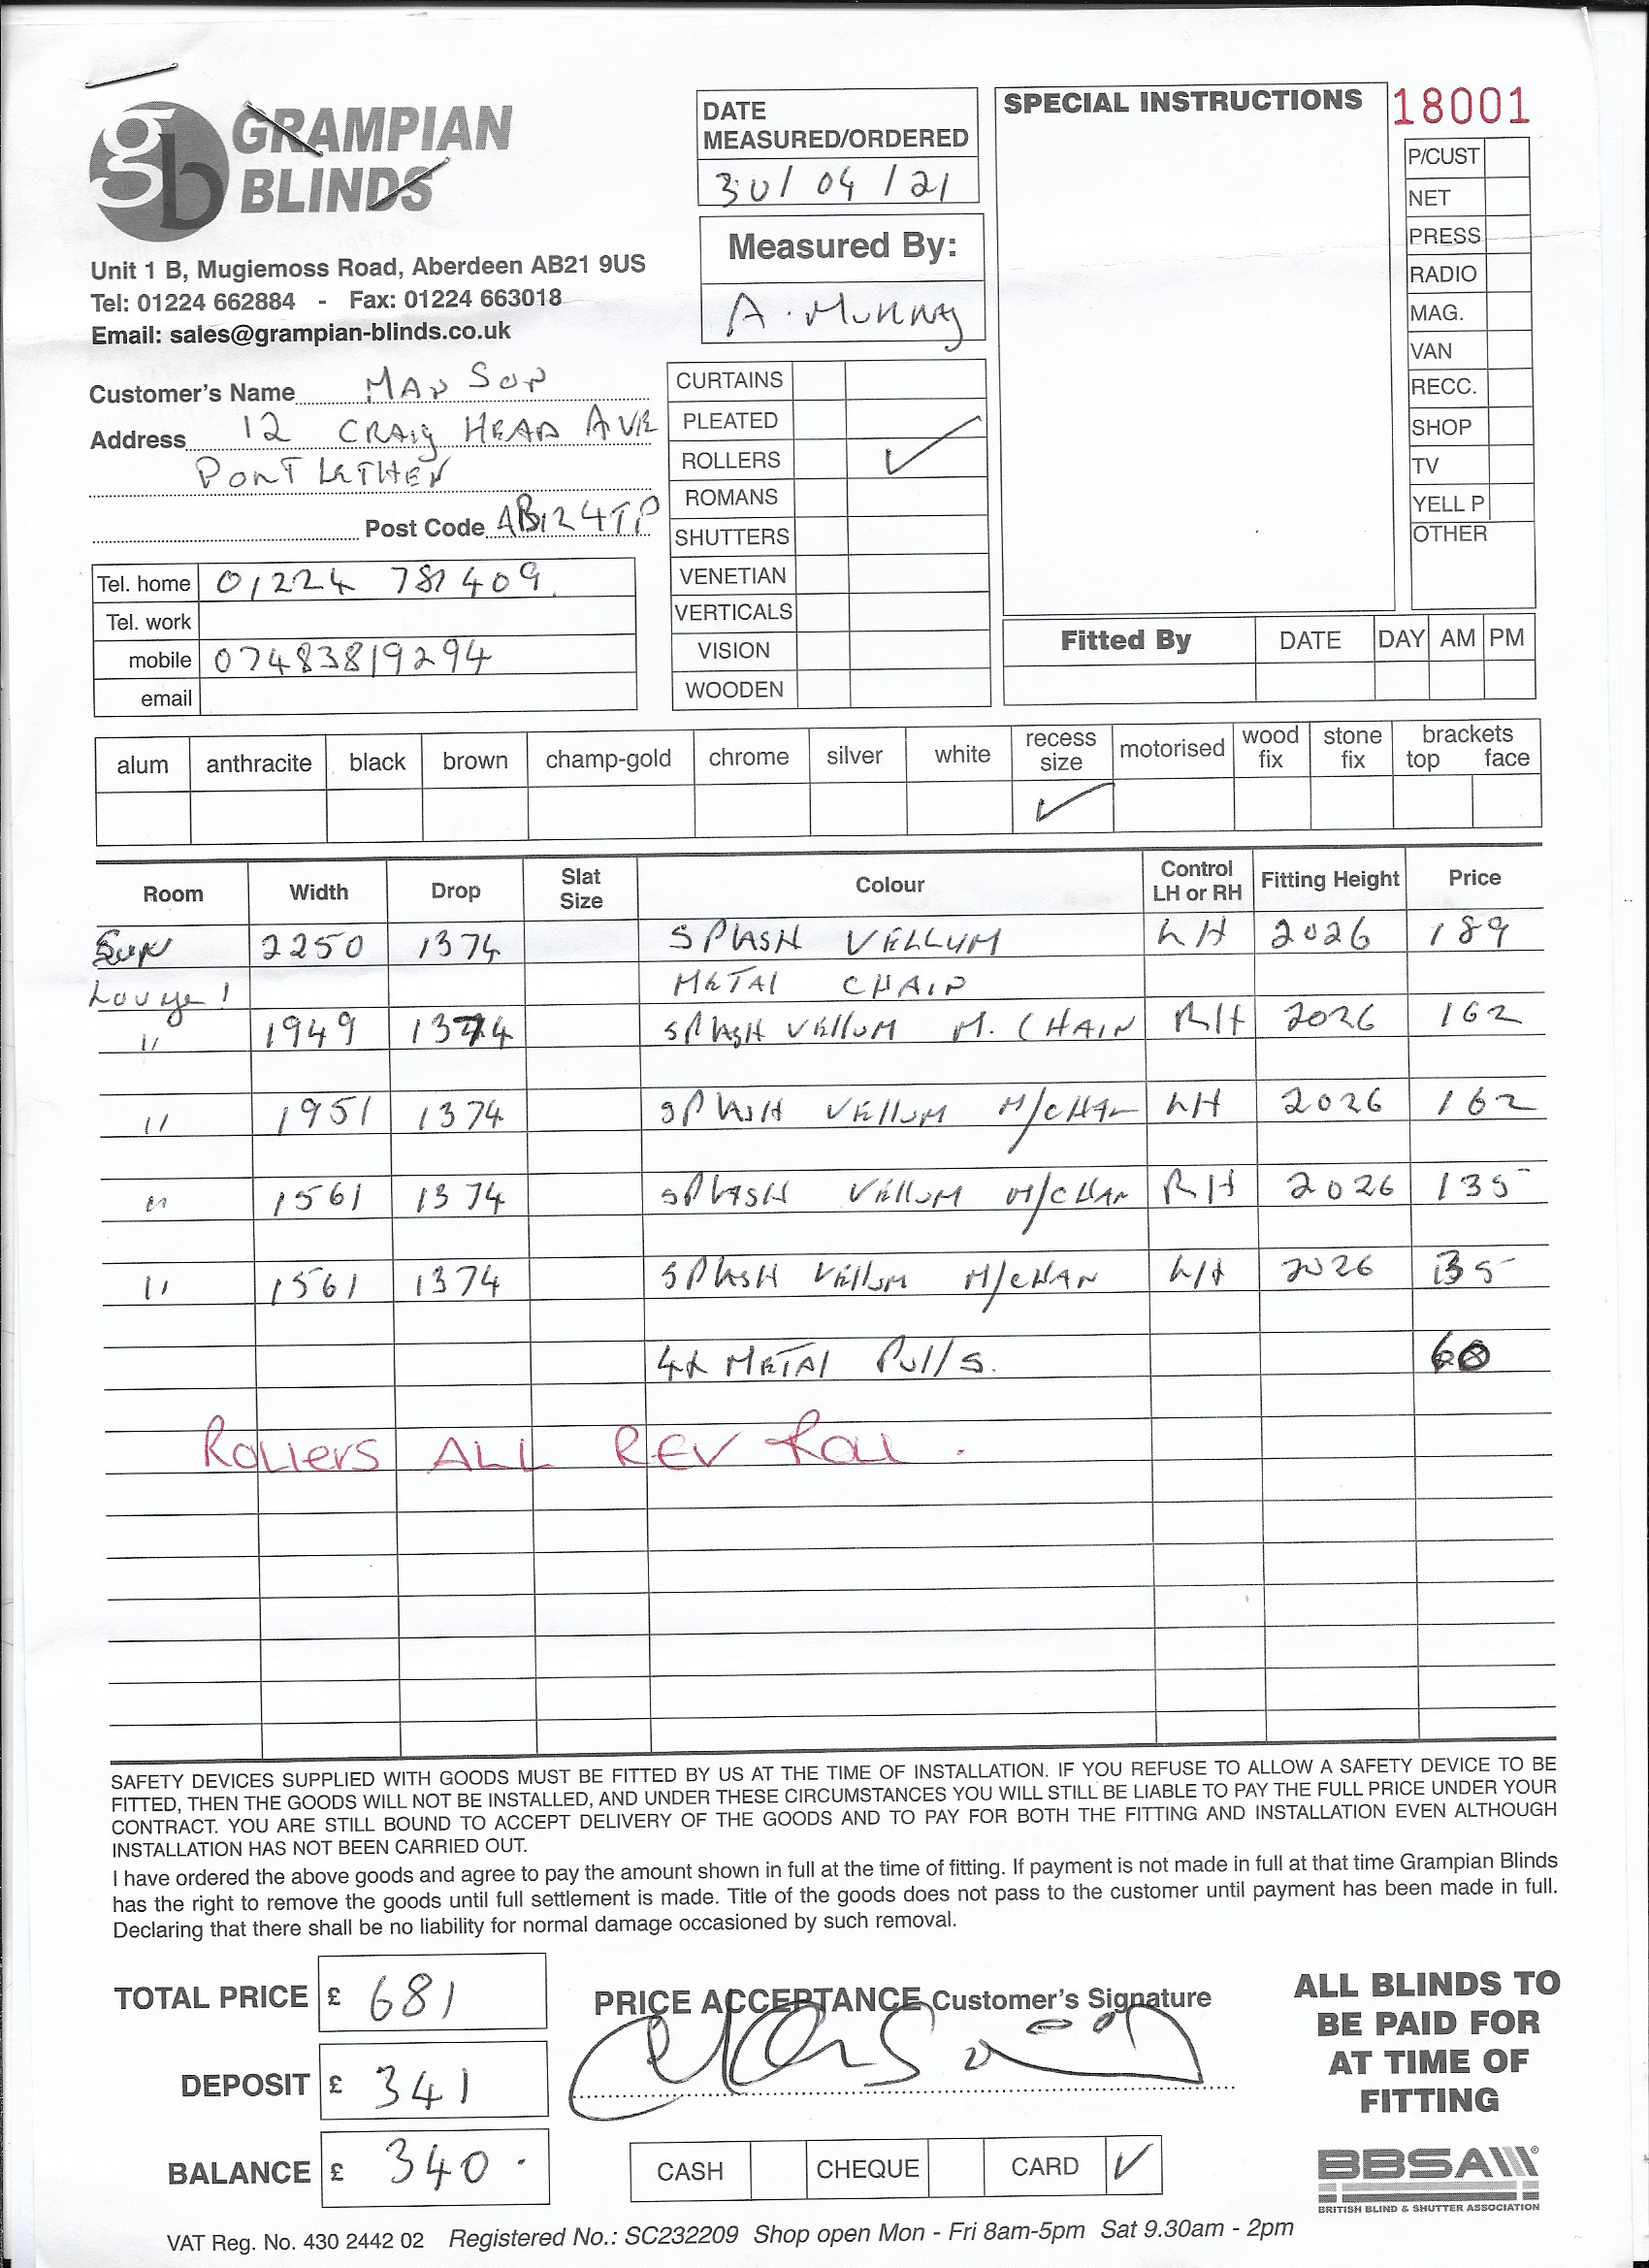 GRAMPIAN
BLINDS
Unit 1 B, Mugiemoss Road, Aberdeen AB21 9US
Tel: 01224 662884 - Fax: 01224 663018
Email: sales@grampian-blinds.co.uk
DATE
MEASURED/ORDERED
30/04/21
Measured By:
A. Murray
SPECIAL INSTRUCTIONS
18001
P/CUST
NET
PRESS
RADIO
MAG.
VAN
RECC.
SHOP
TV
YELL P
OTHER
Customer's Name MANSON
Address 12 CRAIG HEAD AVE
PORTLETHEN
Post Code AB12 4TP
Tel. home 01224 781409
Tel. work
mobile 07483819294
email
CURTAINS
PLEATED
ROLLERS ✓
ROMANS
SHUTTERS
VENETIAN
VERTICALS
VISION
WOODEN
Fitted By DATE DAY AM PM
alum anthracite black brown champ-gold chrome silver white recess size motorised wood fix stone fix brackets top face
✓
Room Width Drop Slat Size Colour Control LH or RH Fitting Height Price
Sun 2250 1374 SPLASH VELLUM LH 2026 189
Lounge 1 METAL CHAIN
" 1949 1374 SPLASH VELLUM M. CHAIN RH 2026 162
" 1951 1374 SPLASH VELLUM M/CHAIN LH 2026 162
" 1561 1374 SPLASH VELLUM M/CHAN RH 2026 135
" 1561 1374 SPLASH VELLUM M/CHAN LH 2026 135
4x METAL Pulls. 60
Rollers ALL REV Roll.
SAFETY DEVICES SUPPLIED WITH GOODS MUST BE FITTED BY US AT THE TIME OF INSTALLATION. IF YOU REFUSE TO ALLOW A SAFETY DEVICE TO BE
FITTED, THEN THE GOODS WILL NOT BE INSTALLED, AND UNDER THESE CIRCUMSTANCES YOU WILL STILL BE LIABLE TO PAY THE FULL PRICE UNDER YOUR
CONTRACT. YOU ARE STILL BOUND TO ACCEPT DELIVERY OF THE GOODS AND TO PAY FOR BOTH THE FITTING AND INSTALLATION EVEN ALTHOUGH
INSTALLATION HAS NOT BEEN CARRIED OUT.
I have ordered the above goods and agree to pay the amount shown in full at the time of fitting. If payment is not made in full at that time Grampian Blinds
has the right to remove the goods until full settlement is made. Title of the goods does not pass to the customer until payment has been made in full.
Declaring that there shall be no liability for normal damage occasioned by such removal.
TOTAL PRICE £ 681
DEPOSIT £ 341
BALANCE £ 340.
PRICE ACCEPTANCE Customer's Signature
CASH CHEQUE CARD ✓
ALL BLINDS TO
BE PAID FOR
AT TIME OF
FITTING
BBSA
BRITISH BLIND & SHUTTER ASSOCIATION
VAT Reg. No. 430 2442 02 Registered No.: SC232209 Shop open Mon - Fri 8am-5pm Sat 9.30am - 2pm